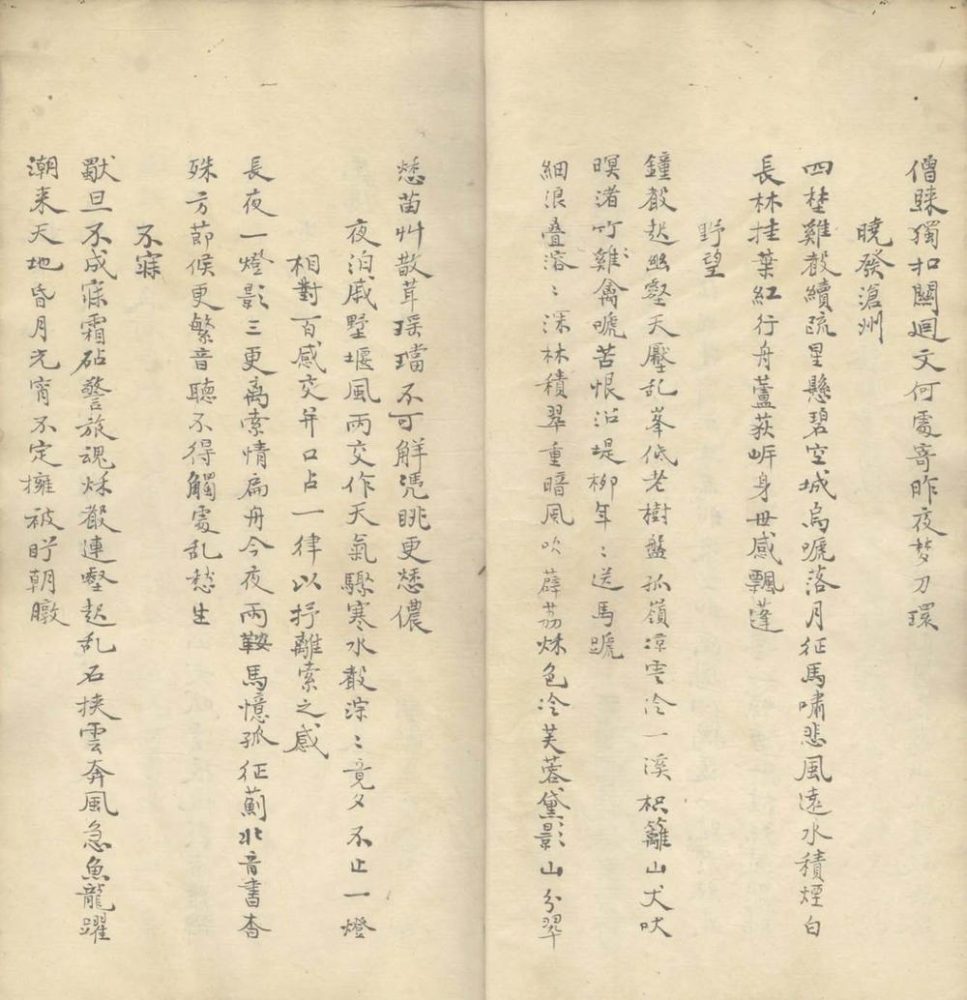 僧歸獨扣關迴文何處寄昨夜梦刀環
曉發滄州
四埜雞殸續疏星懸碧空城烏嗁落月征馬嘯悲風遠水積煙白
長林挂葉紅行舟蘆荻岍身世感飄蓬
野望
鐘殸起幽壑天壓乱峯低老樹盤孤嶺凉雲冷一溪枳籬山犬吠
暝渚竹雞禽嗁苦恨沿堤柳年〻送馬蹏
細浪疊溶〻深林積翠重暗風吹薜荔秌色冷芙蓉黛影山分翠
愁苗艸散茸瑶璫不可解凭眺更愁儂
夜泊戚墅堰風雨交作天氣驟寒水殸淙〻竟夕不止一燈
相對百感交并口占一律以抒離索之感
長夜一燈影三更离索情扁舟今夜雨鞍馬憶孤征薊北音書杳
殊方節候更繁音聽不得觸處乱愁生
不寐
厭旦不成寐霜砧警旅魂秌殸連壑起乱石挟雲奔風急魚龍躍
潮来天地昏月光窗不定擁被盱朝暾